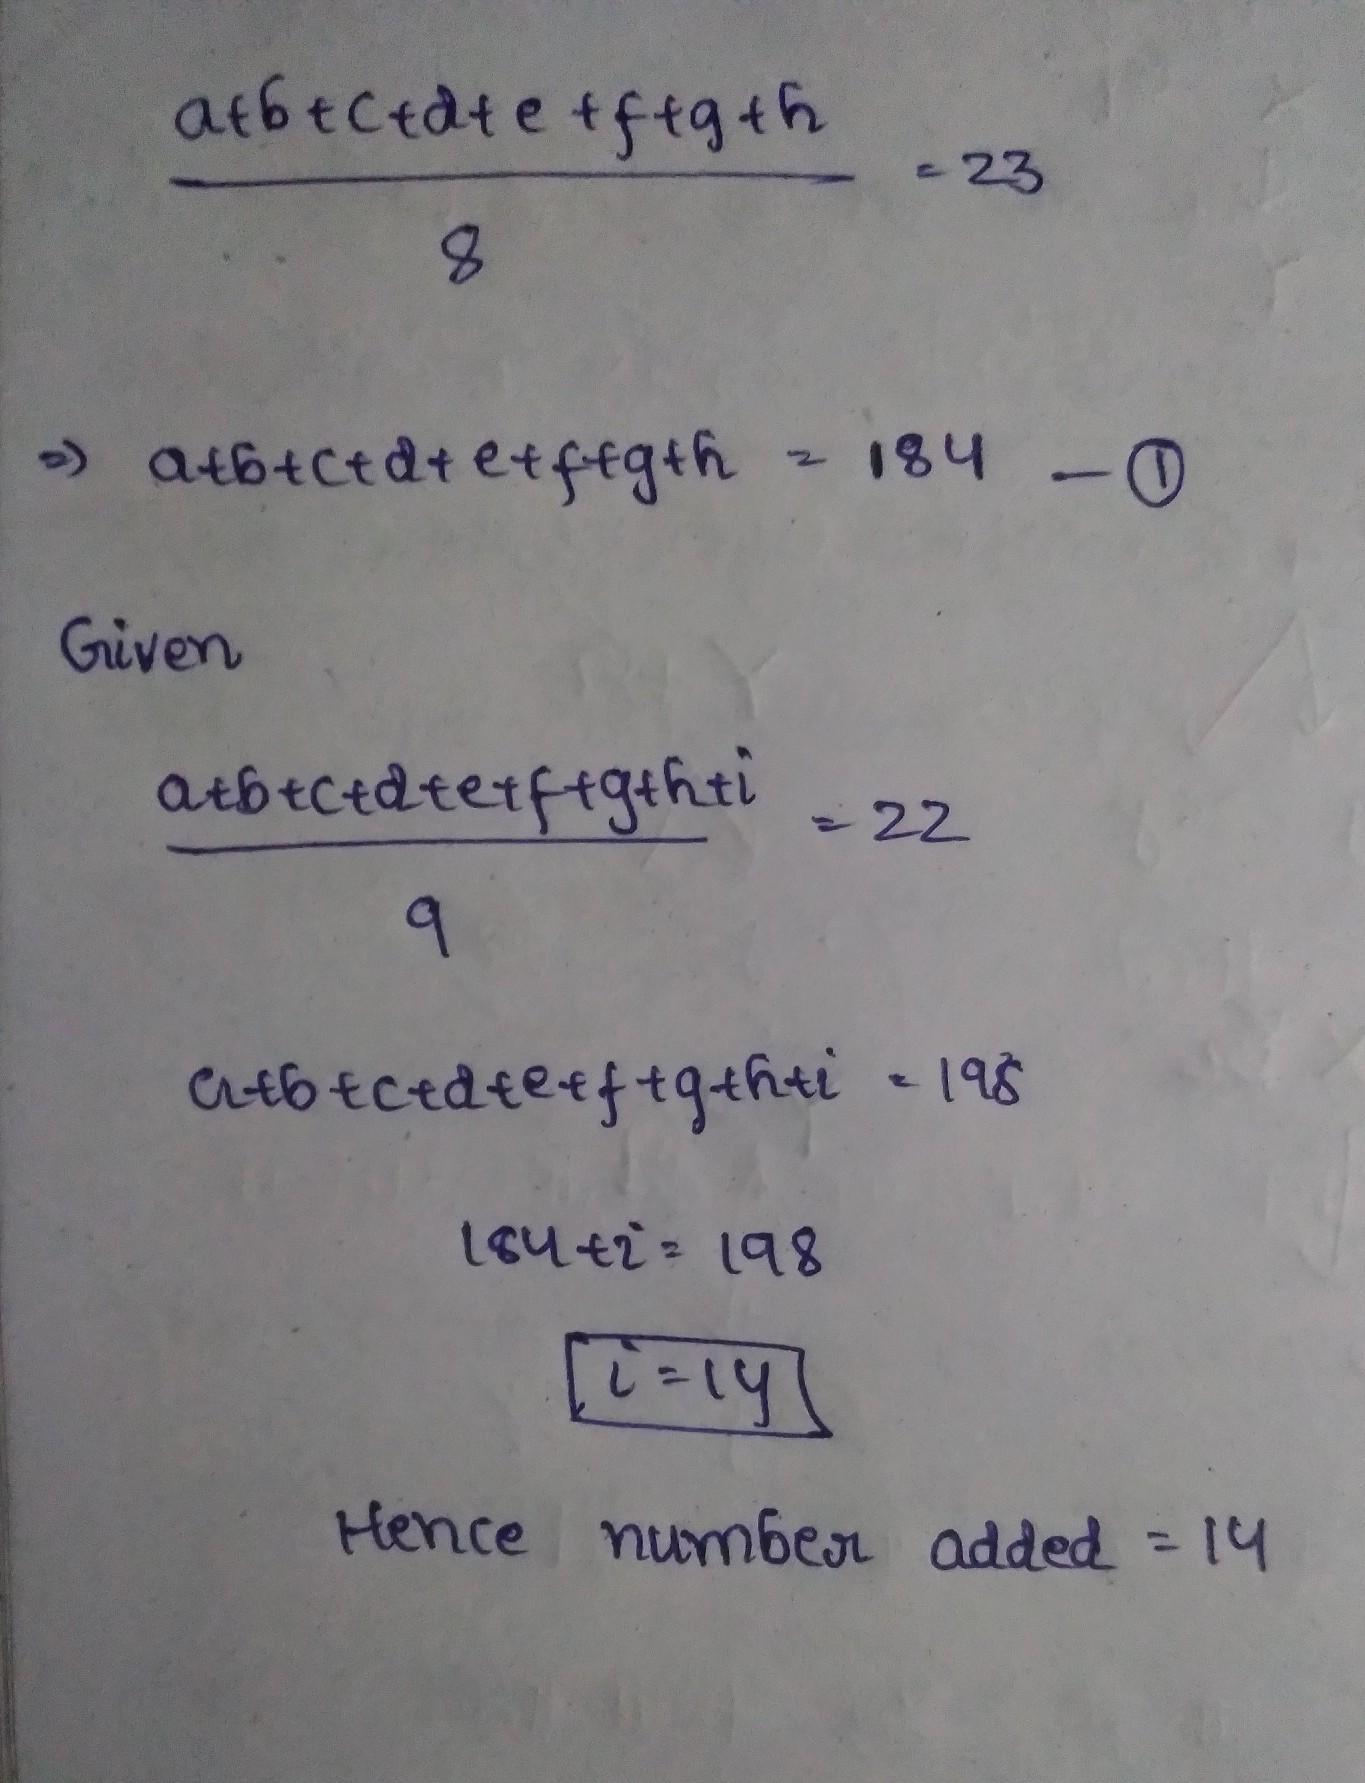 a+b+c+d+e+f+g+h
= 23
8
⇒ a+b+c+d+e+f+g+h = 184 - ①
Given
a+b+c+d+e+f+g+h+i
= 22
9
a+b+c+d+e+f+g+h+i = 198
184+i = 198
i = 14
Hence number added = 14